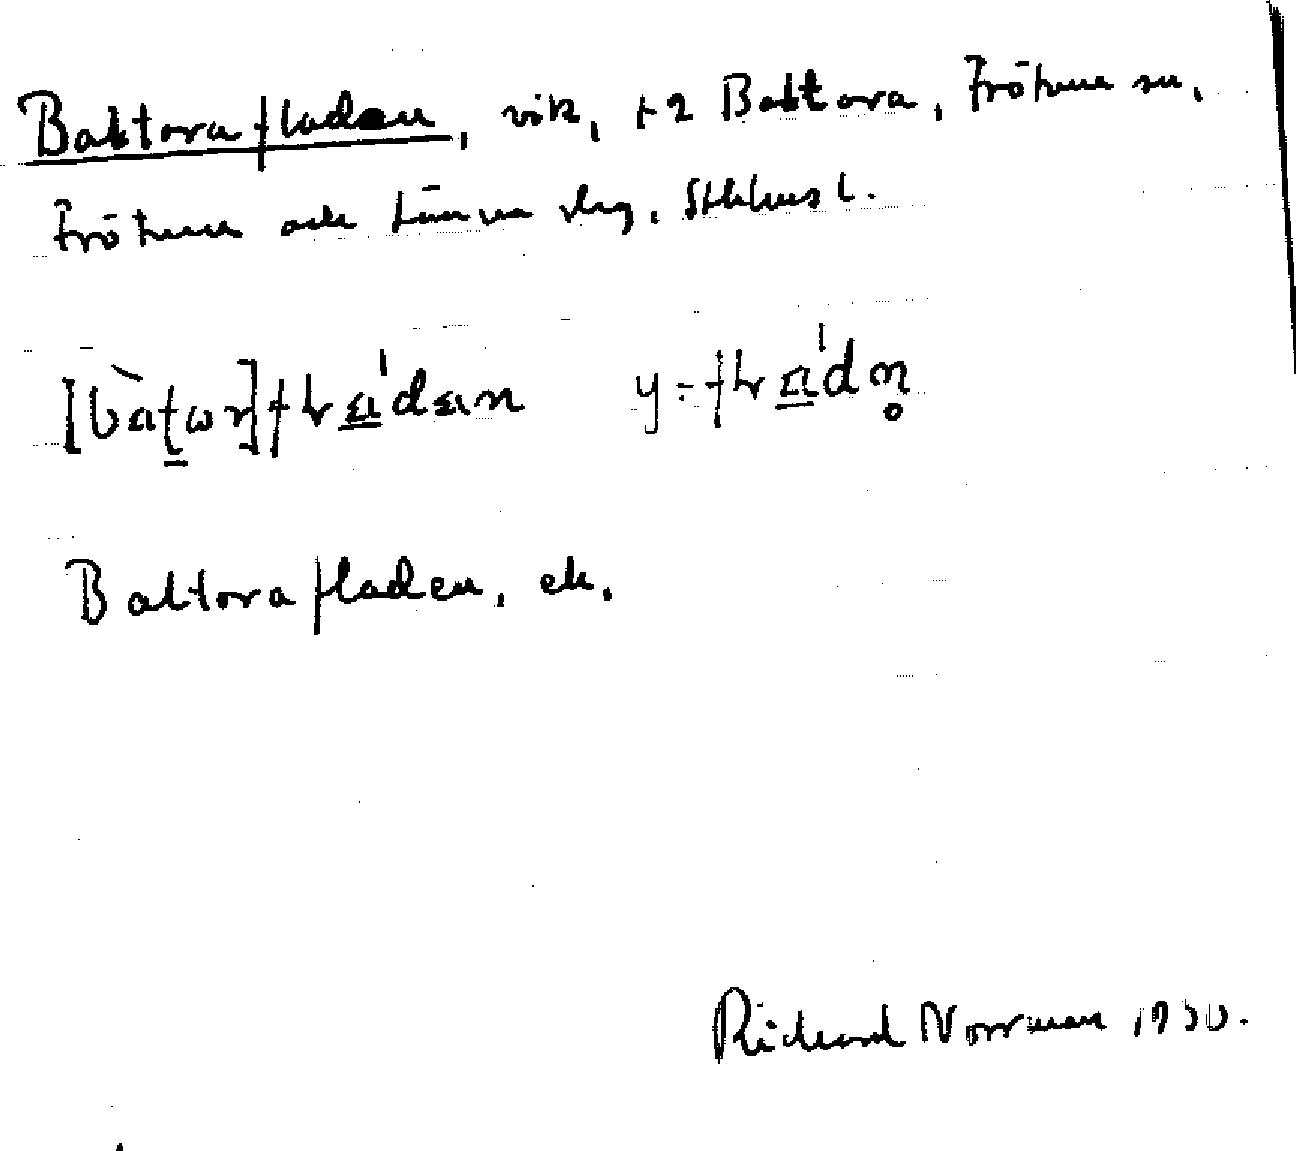 Baktorafladen, vik, t 2 Baktora, Frötuna sn,
Frötuna och Länna skg, Sthlms l.
Baktorafladen, ek.
Richard Norrman 1930.